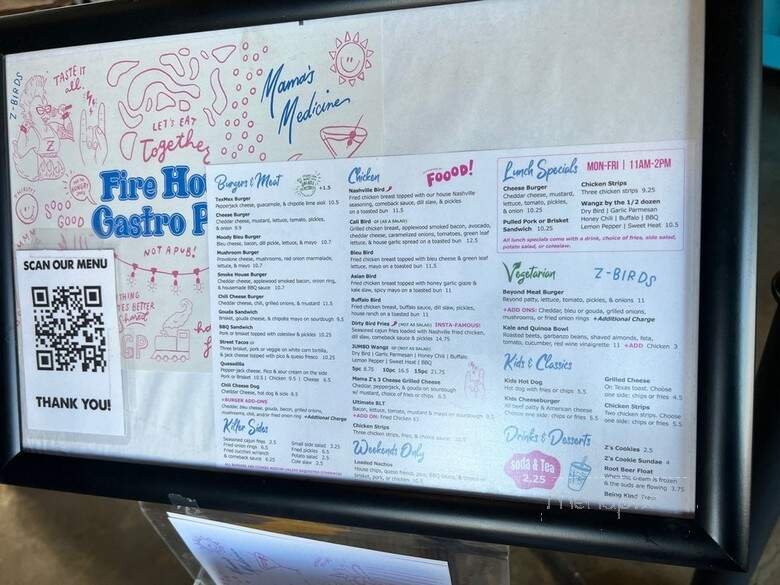 Z-BIRDS
TASTE IT
all.
LET'S EAT
Together
Mama's
Medicine
Fire Ho
Gastro P
NOT A PUB!
SCAN OUR MENU
THANK YOU!
Burgers & Meat
+1.5
TexMex Burger
Pepperjack cheese, guacamole, & chipotle lime aioli 10.5
Cheese Burger
Cheddar cheese, mustard, lettuce, tomato, pickles,
& onion 9.9
Moody Bleu Burger
Bleu cheese, bacon, dill pickle, lettuce, & mayo 10.7
Mushroom Burger
Provolone cheese, mushrooms, red onion marmalade,
lettuce, & mayo 10.7
Smoke House Burger
Cheddar cheese, applewood smoked bacon, onion ring,
& housemade BBQ sauce 10.7
Chili Cheese Burger
Cheddar cheese, chili, grilled onions, & mustard 11.5
Gouda Sandwich
Brisket, gouda cheese, & chipotle mayo on sourdough 9.5
BBQ Sandwich
Pork or brisket topped with coleslaw & pickles 10.25
Street Tacos
Three brisket, pork or veggie on white corn tortilla,
& jack cheese topped with pico & queso fresco 10.25
Quesadilla
Pepper-jack cheese, Pico & sour cream on the side
Pork or Brisket 10.5 | Chicken 9.5 | Cheese 6.5
Chili Cheese Dog
Cheddar Cheese, hot dog & side 8.5
+BURGER ADD-ONS
Cheddar, bleu cheese, gouda, bacon, grilled onions,
mushrooms, chili, and/or fried onion ring +Additional Charge
Killer Sides
Seasoned cajun fries 2.5
Fried onion rings 6.5
Fried zucchini w/ranch
& comeback sauce 6.25
Small side salad 3.25
Fried pickles 6.5
Potato salad 2.5
Cole slaw 2.5
Chicken
FOOOD!
Nashville Bird
Fried chicken breast topped with our house Nashville
seasoning, comeback sauce, dill slaw, & pickles
on a toasted bun 11.5
Cali Bird (OR AS A SALAD)
Grilled chicken breast, applewood smoked bacon, avocado,
cheddar cheese, caramelized onions, tomatoes, green leaf
lettuce, & house garlic spread on a toasted bun 12.5
Bleu Bird
Fried chicken breast topped with bleu cheese & green leaf
lettuce, mayo on a toasted bun 11.5
Asian Bird
Fried chicken breast topped with honey garlic glaze &
kale slaw, spicy mayo on a toasted bun 11
Buffalo Bird
Fried chicken breast, buffalo sauce, dill slaw, pickles,
house ranch on a toasted bun 11
Dirty Bird Fries (NOT AS SALAD) INSTA-FAMOUS!
Seasoned cajun fries loaded with Nashville fried chicken, dill
slaw, comeback sauce & pickles 14.75
JUMBO Wangz
Dry Bird | Garlic Parmesan | Honey Chili | Buffalo
Lemon Pepper | Sweet Heat | BBQ
5pc 8.75 10pc 16.5 15pc 21.75
Mama Z's 3 Cheese Grilled Cheese
Cheddar, pepperjack, & gouda on sourdough
w/ mustard, choice of fries or chips 6.5
Ultimate BLT
Bacon, lettuce, tomato, mustard & mayo on sourdough 8.5
+ADD ON: Fried Chicken $3
Chicken Strips
Three chicken strips, fries, & choice sauce 10.5
Weekends Only
Loaded Nachos
Lunch Specials MON-FRI | 11AM-2PM
Cheese Burger
Cheddar cheese, mustard,
lettuce, tomato, pickles,
& onion 10.25
Pulled Pork or Brisket
Sandwich 10.25
Chicken Strips
Three chicken strips 9.25
Wangz by the 1/2 dozen
Dry Bird | Garlic Parmesan
Honey Chili | Buffalo | BBQ
Lemon Pepper | Sweet Heat 10.5
All lunch specials come with a drink, choice of fries, side salad,
potato salad, or coleslaw.
Vegetarian
Z-BIRDS
Beyond Meat Burger
Beyond patty, lettuce, tomato, pickles, & onions 11
+ADD ONS: Cheddar, bleu or gouda, grilled onions,
mushrooms, or fried onion rings +Additional Charge
Kale and Quinoa Bowl
Roasted beets, garbanzo beans, shaved almonds, feta,
tomato, cucumber, red wine vinaigrette 11 +ADD Chicken 3
Kids & Classics
Kids Hot Dog
Hot dog with fries or chips 5.5
Kids Cheeseburger
All beef patty & American cheese
Choose side: chips or fries 5.5
Grilled Cheese
On Texas toast. Choose
one side: chips or fries 4.5
Chicken Strips
Two chicken strips. Choose
one side: chips or fries 5.5
Drinks & Desserts
soda & Tea
2.25
Z's Cookies 2.5
Z's Cookie Sundae 4
Root Beer Float
When the cream is frozen
& the suds are flowing 3.75
Being Kind